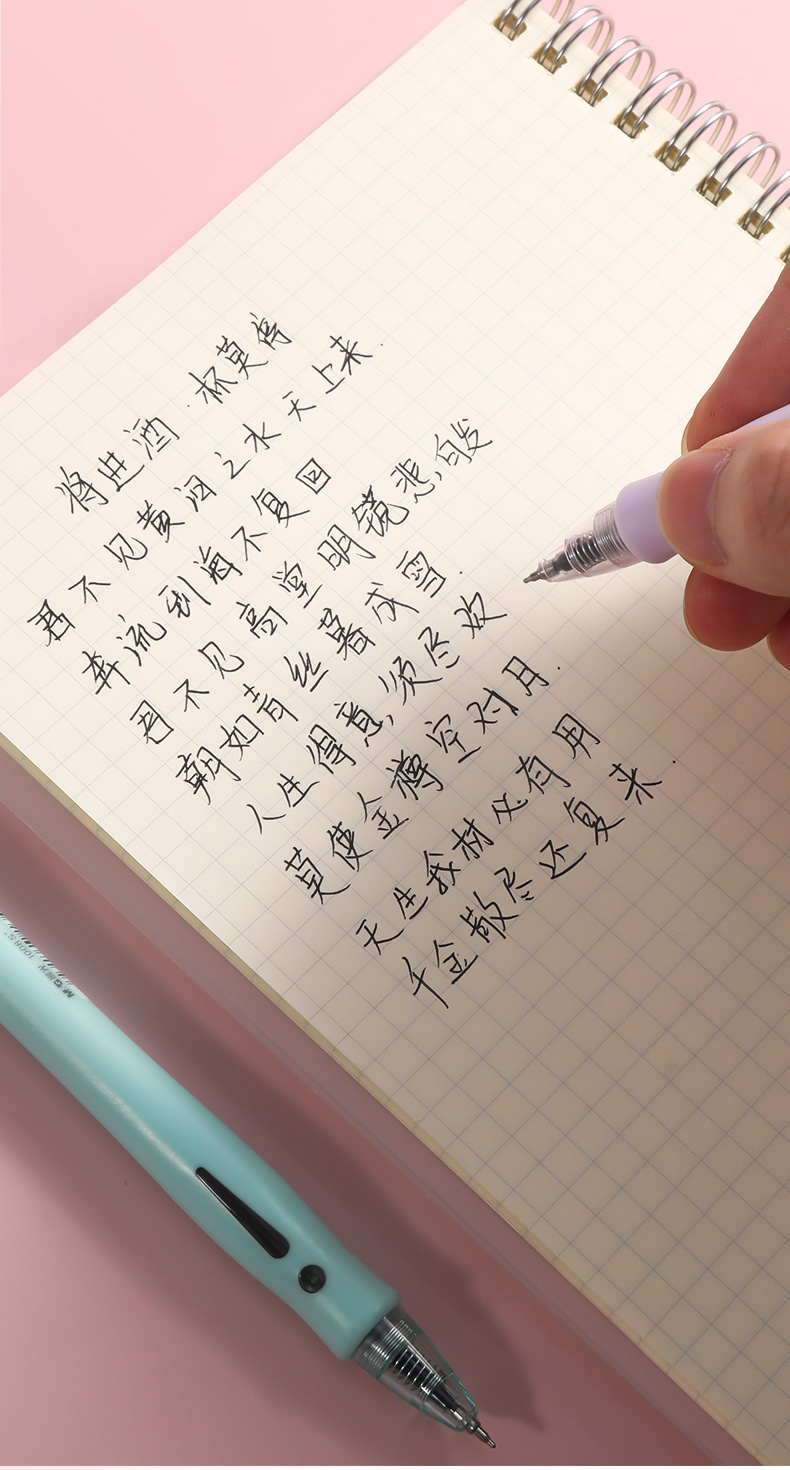 将进酒.杯莫停
君不见黄河之水天上来.
奔流到海不复回
君不见高堂明镜悲白发
朝如青丝暮成雪.
人生得意须尽欢
莫使金樽空对月.
天生我材必有用
千金散尽还复来.
M&G晨光